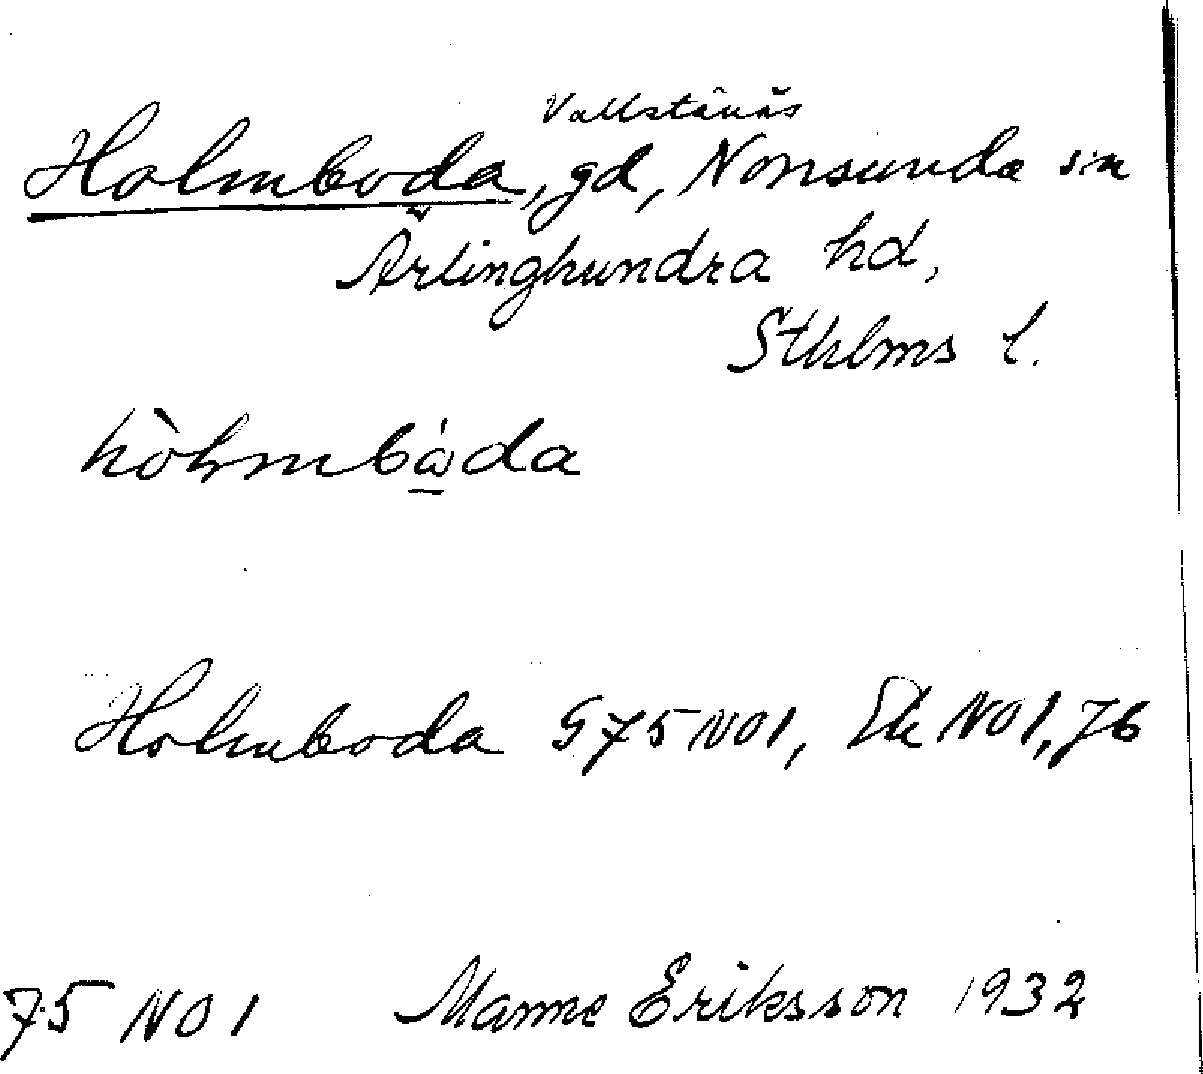 Vallstanäs
Holmboda, gd, Norrsunda sn
Ärlinghundra hd,
Sthlms l.
hòlmbǻda
Holmboda G 75 NO1, Ek NO1, 76
75 NO 1 Manne Eriksson 1932